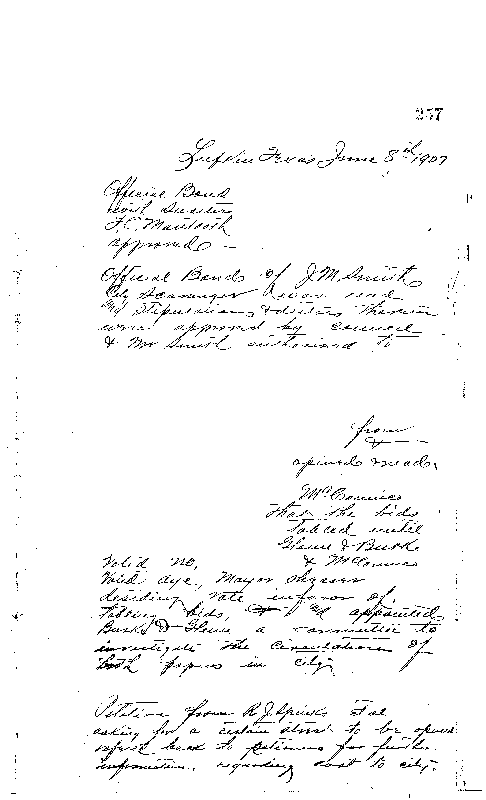 257
Lufkin Texas June 8th 1907
Official Bond
F.C. Mantooth
approved
Official Bonds of J.M. Smith
City Scavenger was read
and Stipulations therein
were approved by council
& Mr Smith authorized to
from
opened & read.
McConnico
that the bids
tabled until
Glenn & Burk
& McConnico
Vot'd no,
Vot'd aye, Mayor
deciding vote in favor of
tabling bids, & appointed
Burk & Glenn a committee to
investigate the circulation of
both papers in city
Petition from R.J. Spinks et al
asking for a certain street to be opened
refer'd back to petitioners for further
information, regarding cost to city.